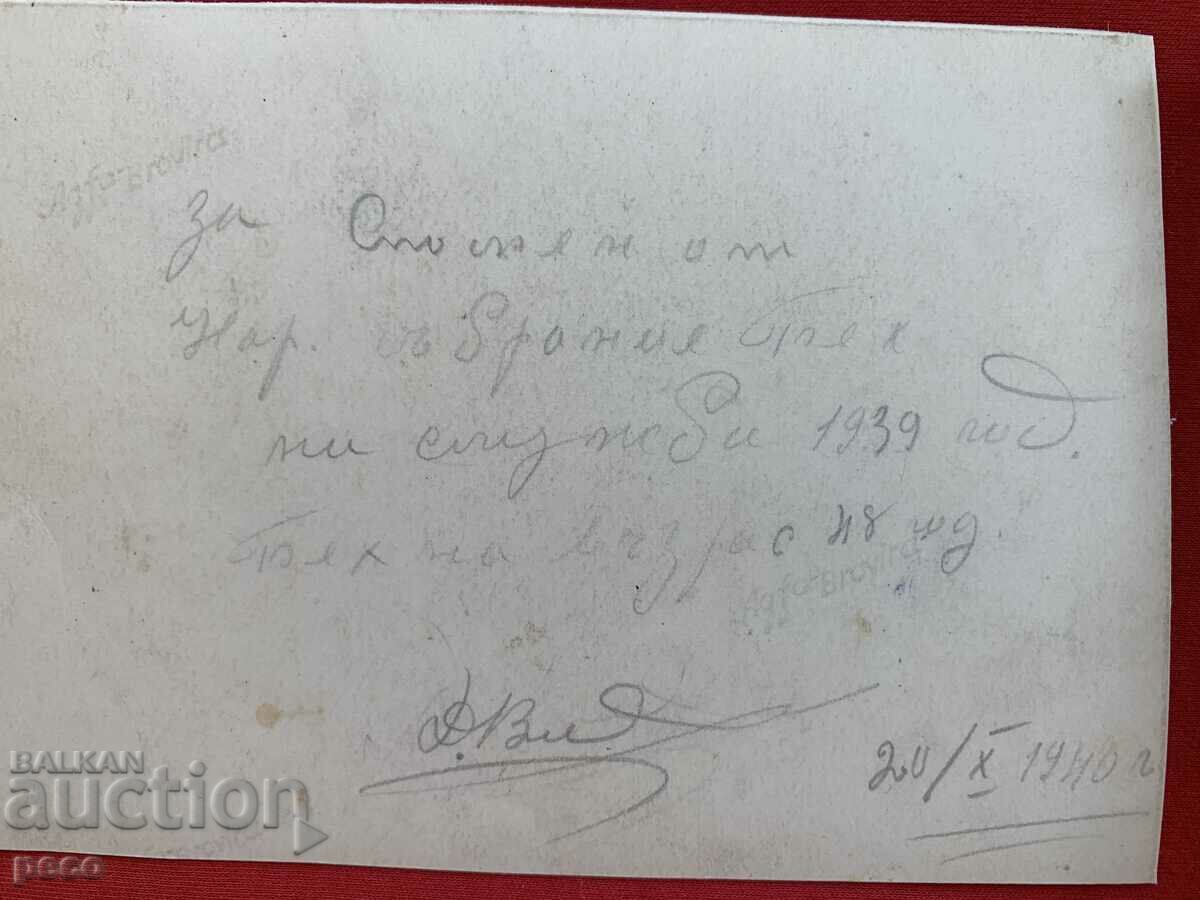 Agfa-Brovira
за Спомен от
Нар. събрание бях
ни служби 1939 год.
бях на възрас 48 год.
Agfa-Brovira
Д. Вл
20/X 1940 г
BALKAN
auction
peco